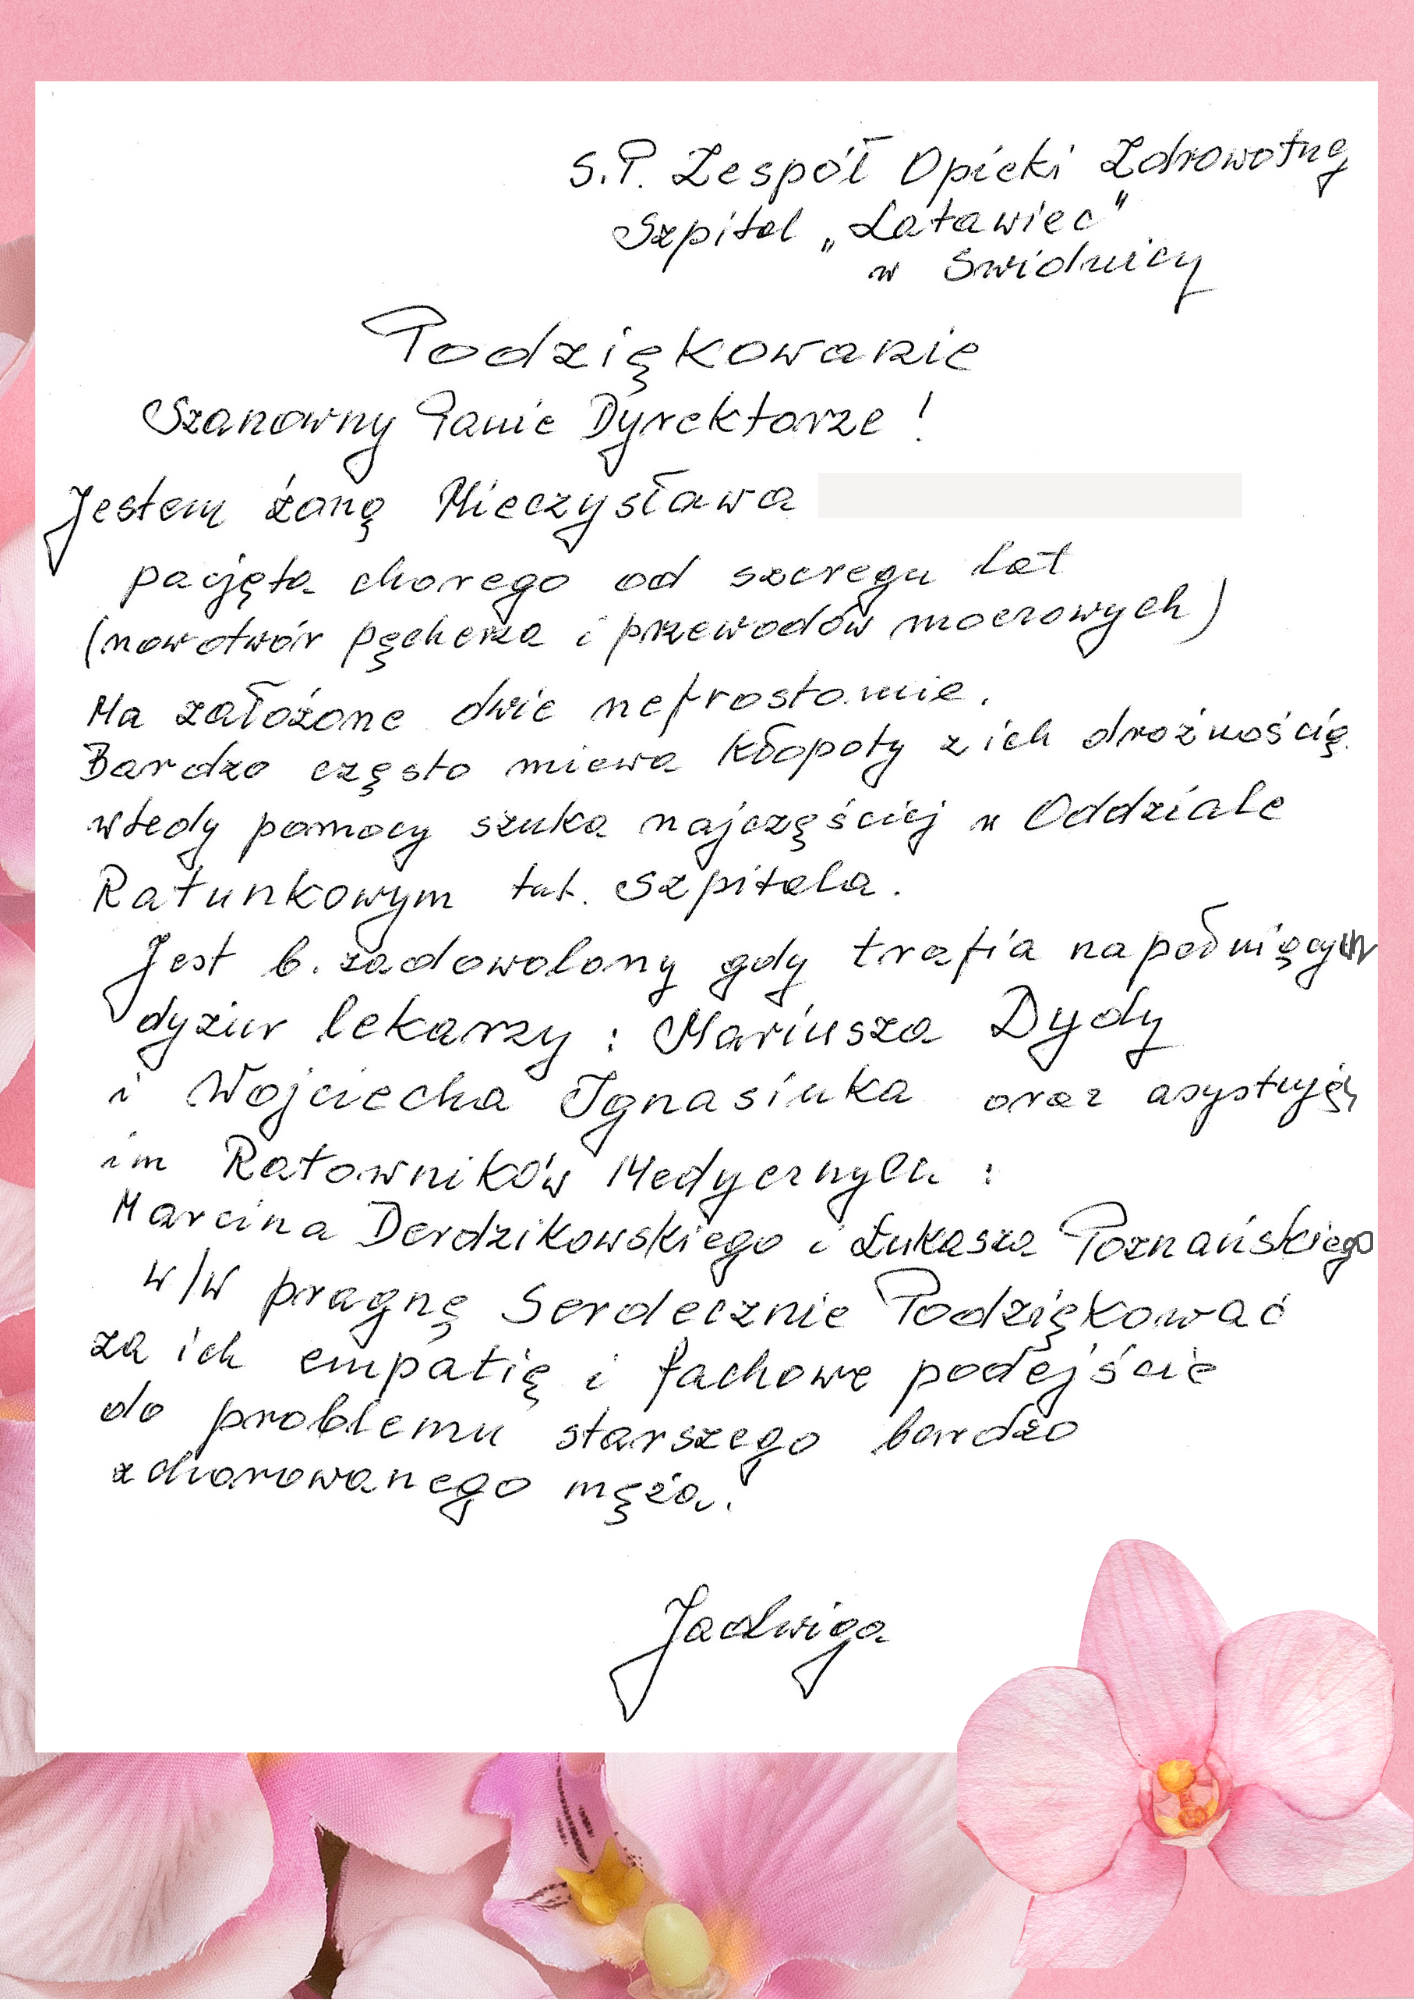 S.P. Zespół Opieki Zdrowotnej
Szpital „Latawiec"
w Świdnicy
Podziękowanie
Szanowny Panie Dyrektorze !
Jestem żoną Mieczysława
pacjęta chorego od szeregu lat
(nowotwór pęcherza i przewodów moczowych)
Ma założone dwie nefrostomie.
Bardzo często miewa kłopoty z ich drożnością
wtedy pomocy szuka najczęściej w Oddziale
Ratunkowym tut. Szpitala.
Jest b. zadowolony gdy trafia na pełniących
dyżur lekarzy : Mariusza Dydy
i Wojciecha Ignasiuka oraz
im Ratowników Medycznych :
Marcina Derdzikowskiego i Łukasza Poznańskiego
w/w pragnę Serdecznie Podziękować
za ich empatię i fachowe podejście
do problemu starszego bardzo
zchorowanego męża.
Jadwiga